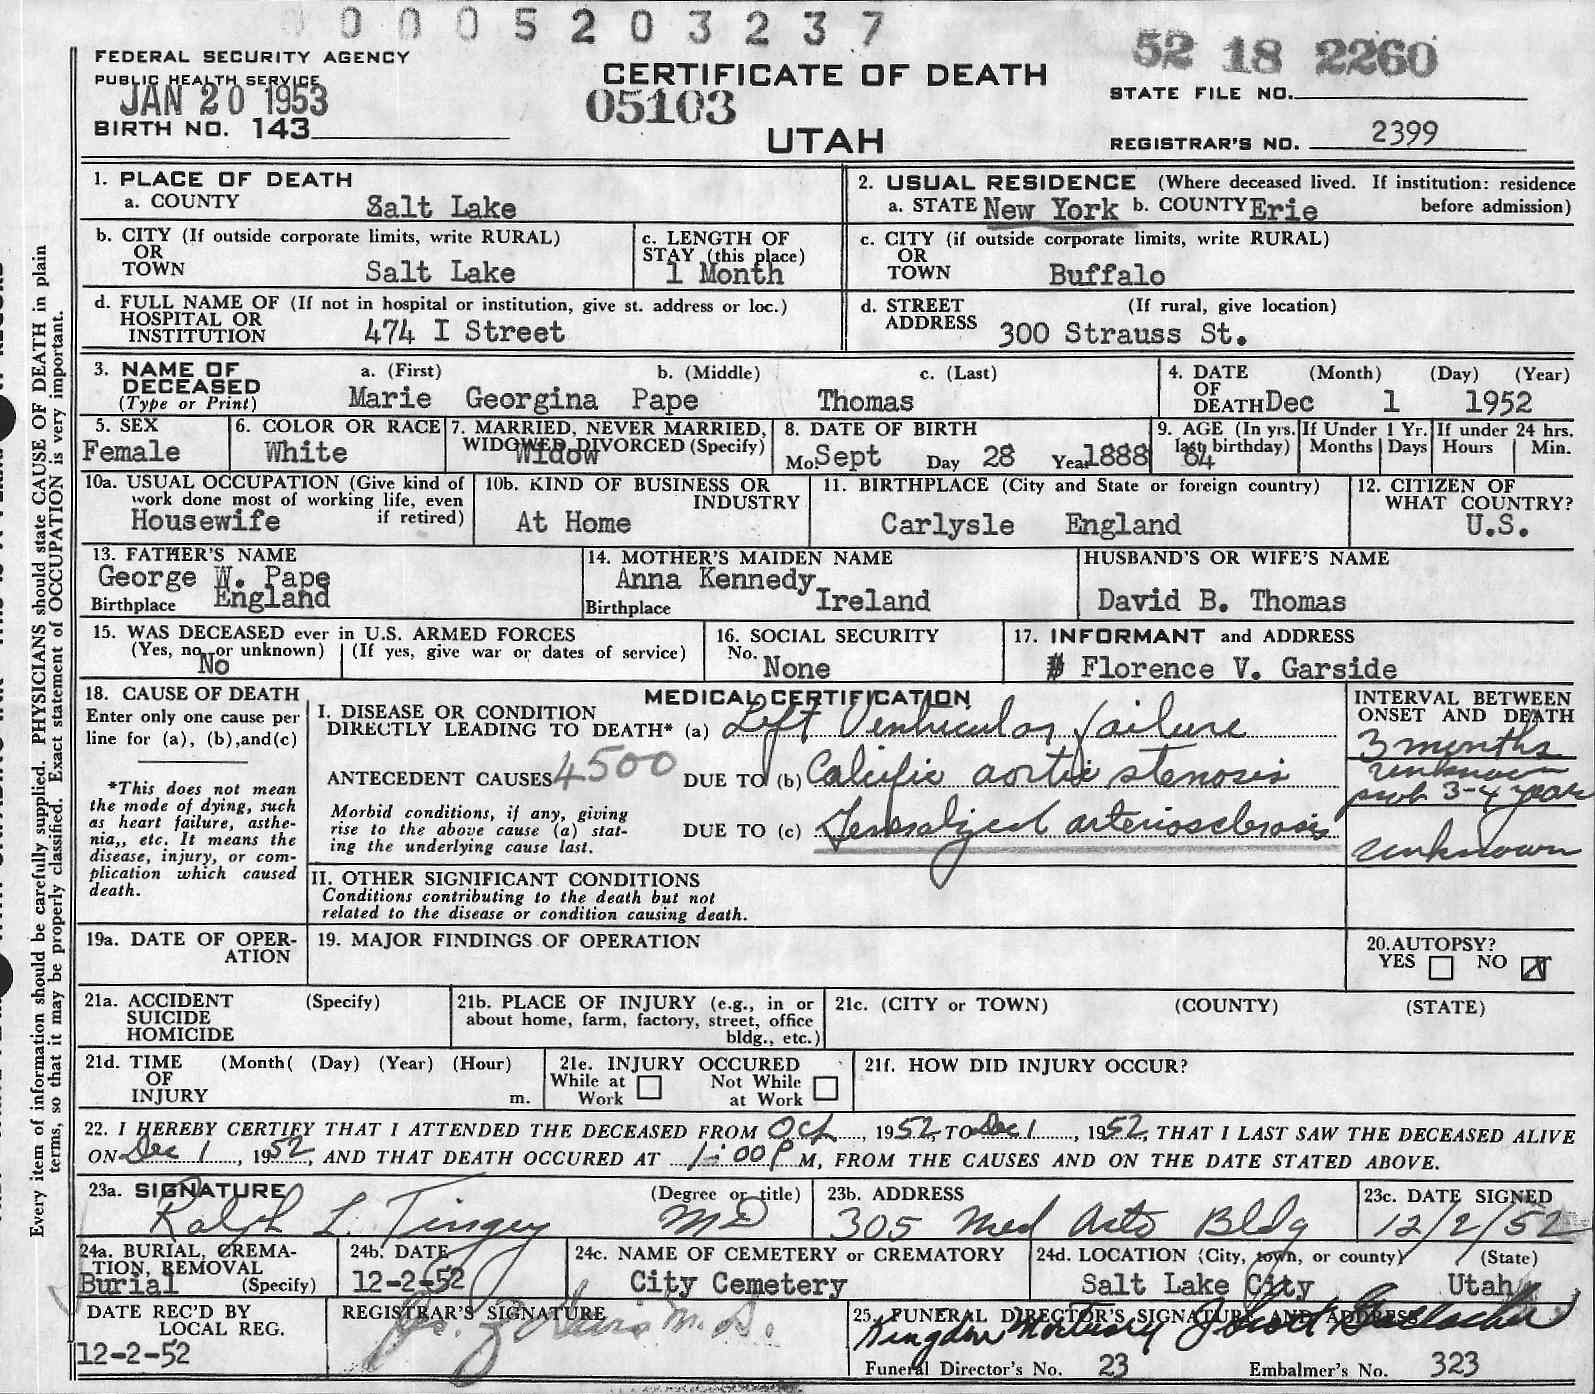 0005203237
52 18 2260
FEDERAL SECURITY AGENCY
PUBLIC HEALTH SERVICE
JAN 20 1953
BIRTH NO. 143
CERTIFICATE OF DEATH
05103
UTAH
STATE FILE NO.
REGISTRAR'S NO. 2399
1. PLACE OF DEATH
a. COUNTY Salt Lake
2. USUAL RESIDENCE (Where deceased lived. If institution: residence before admission)
a. STATE New York b. COUNTY Erie
b. CITY (If outside corporate limits, write RURAL)
OR
TOWN Salt Lake
c. LENGTH OF
STAY (this place)
1 Month
c. CITY (if outside corporate limits, write RURAL)
OR
TOWN Buffalo
d. FULL NAME OF (If not in hospital or institution, give st. address or loc.)
HOSPITAL OR
INSTITUTION 474 I Street
d. STREET (If rural, give location)
ADDRESS 300 Strauss St.
3. NAME OF
DECEASED
(Type or Print)
a. (First) b. (Middle) c. (Last)
Marie Georgina Pape Thomas
4. DATE (Month) (Day) (Year)
OF
DEATH Dec 1 1952
5. SEX
Female
6. COLOR OR RACE
White
7. MARRIED, NEVER MARRIED,
WIDOWED DIVORCED (Specify)
Widow
8. DATE OF BIRTH
Mo. Sept Day 28 Year 1888
9. AGE (In yrs. last birthday)
64
If Under 1 Yr.
Months Days
If under 24 hrs.
Hours Min.
10a. USUAL OCCUPATION (Give kind of
work done most of working life, even
if retired)
Housewife
10b. KIND OF BUSINESS OR
INDUSTRY
At Home
11. BIRTHPLACE (City and State or foreign country)
Carlysle England
12. CITIZEN OF
WHAT COUNTRY?
U.S.
13. FATHER'S NAME
George W. Pape
Birthplace England
14. MOTHER'S MAIDEN NAME
Anna Kennedy
Birthplace Ireland
HUSBAND'S OR WIFE'S NAME
David B. Thomas
15. WAS DECEASED ever in U.S. ARMED FORCES
(Yes, no, or unknown) (If yes, give war or dates of service)
No
16. SOCIAL SECURITY
No. None
17. INFORMANT and ADDRESS
Florence V. Garside
18. CAUSE OF DEATH
Enter only one cause per
line for (a), (b),and(c)
*This does not mean
the mode of dying, such
as heart failure, asthe-
nia,, etc. It means the
disease, injury, or com-
plication which caused
death.
MEDICAL CERTIFICATION
I. DISEASE OR CONDITION
DIRECTLY LEADING TO DEATH* (a) Left Ventricular failure
ANTECEDENT CAUSES 4500 DUE TO (b) Calcific aortic stenosis
Morbid conditions, if any, giving
rise to the above cause (a) stat-
ing the underlying cause last.
DUE TO (c) Generalized arteriosclerosis
INTERVAL BETWEEN
ONSET AND DEATH
3 months
unknown
prob 3-4 years
unknown
II. OTHER SIGNIFICANT CONDITIONS
Conditions contributing to the death but not
related to the disease or condition causing death.
19a. DATE OF OPER-
ATION
19. MAJOR FINDINGS OF OPERATION
20.AUTOPSY?
YES NO
21a. ACCIDENT (Specify)
SUICIDE
HOMICIDE
21b. PLACE OF INJURY (e.g., in or
about home, farm, factory, street, office
bldg., etc.)
21c. (CITY or TOWN) (COUNTY) (STATE)
21d. TIME (Month( (Day) (Year) (Hour)
OF
INJURY m.
21e. INJURY OCCURED
While at Work Not While at Work
21f. HOW DID INJURY OCCUR?
22. I HEREBY CERTIFY THAT I ATTENDED THE DECEASED FROM Oct, 1952, TO Dec 1, 1952, THAT I LAST SAW THE DECEASED ALIVE
ON Dec 1, 1952, AND THAT DEATH OCCURED AT 1:00 P M, FROM THE CAUSES AND ON THE DATE STATED ABOVE.
23a. SIGNATURE (Degree or title)
Ralph L. Tingey MD
23b. ADDRESS
305 Med Arts Bldg
23c. DATE SIGNED
12/2/52
24a. BURIAL, CREMA-
TION, REMOVAL
Burial (Specify)
24b. DATE
12-2-52
24c. NAME OF CEMETERY or CREMATORY
City Cemetery
24d. LOCATION (City, town, or county) (State)
Salt Lake City Utah
DATE REC'D BY
LOCAL REG.
12-2-52
REGISTRAR'S SIGNATURE
M.D.
25. FUNERAL DIRECTOR'S SIGNATURE AND ADDRESS
Mortuary
Funeral Director's No. 23 Embalmer's No. 323
Every item of information should be carefully supplied. PHYSICIANS should state CAUSE OF DEATH in plain
terms, so that it may be properly classified. Exact statement of OCCUPATION is very important.